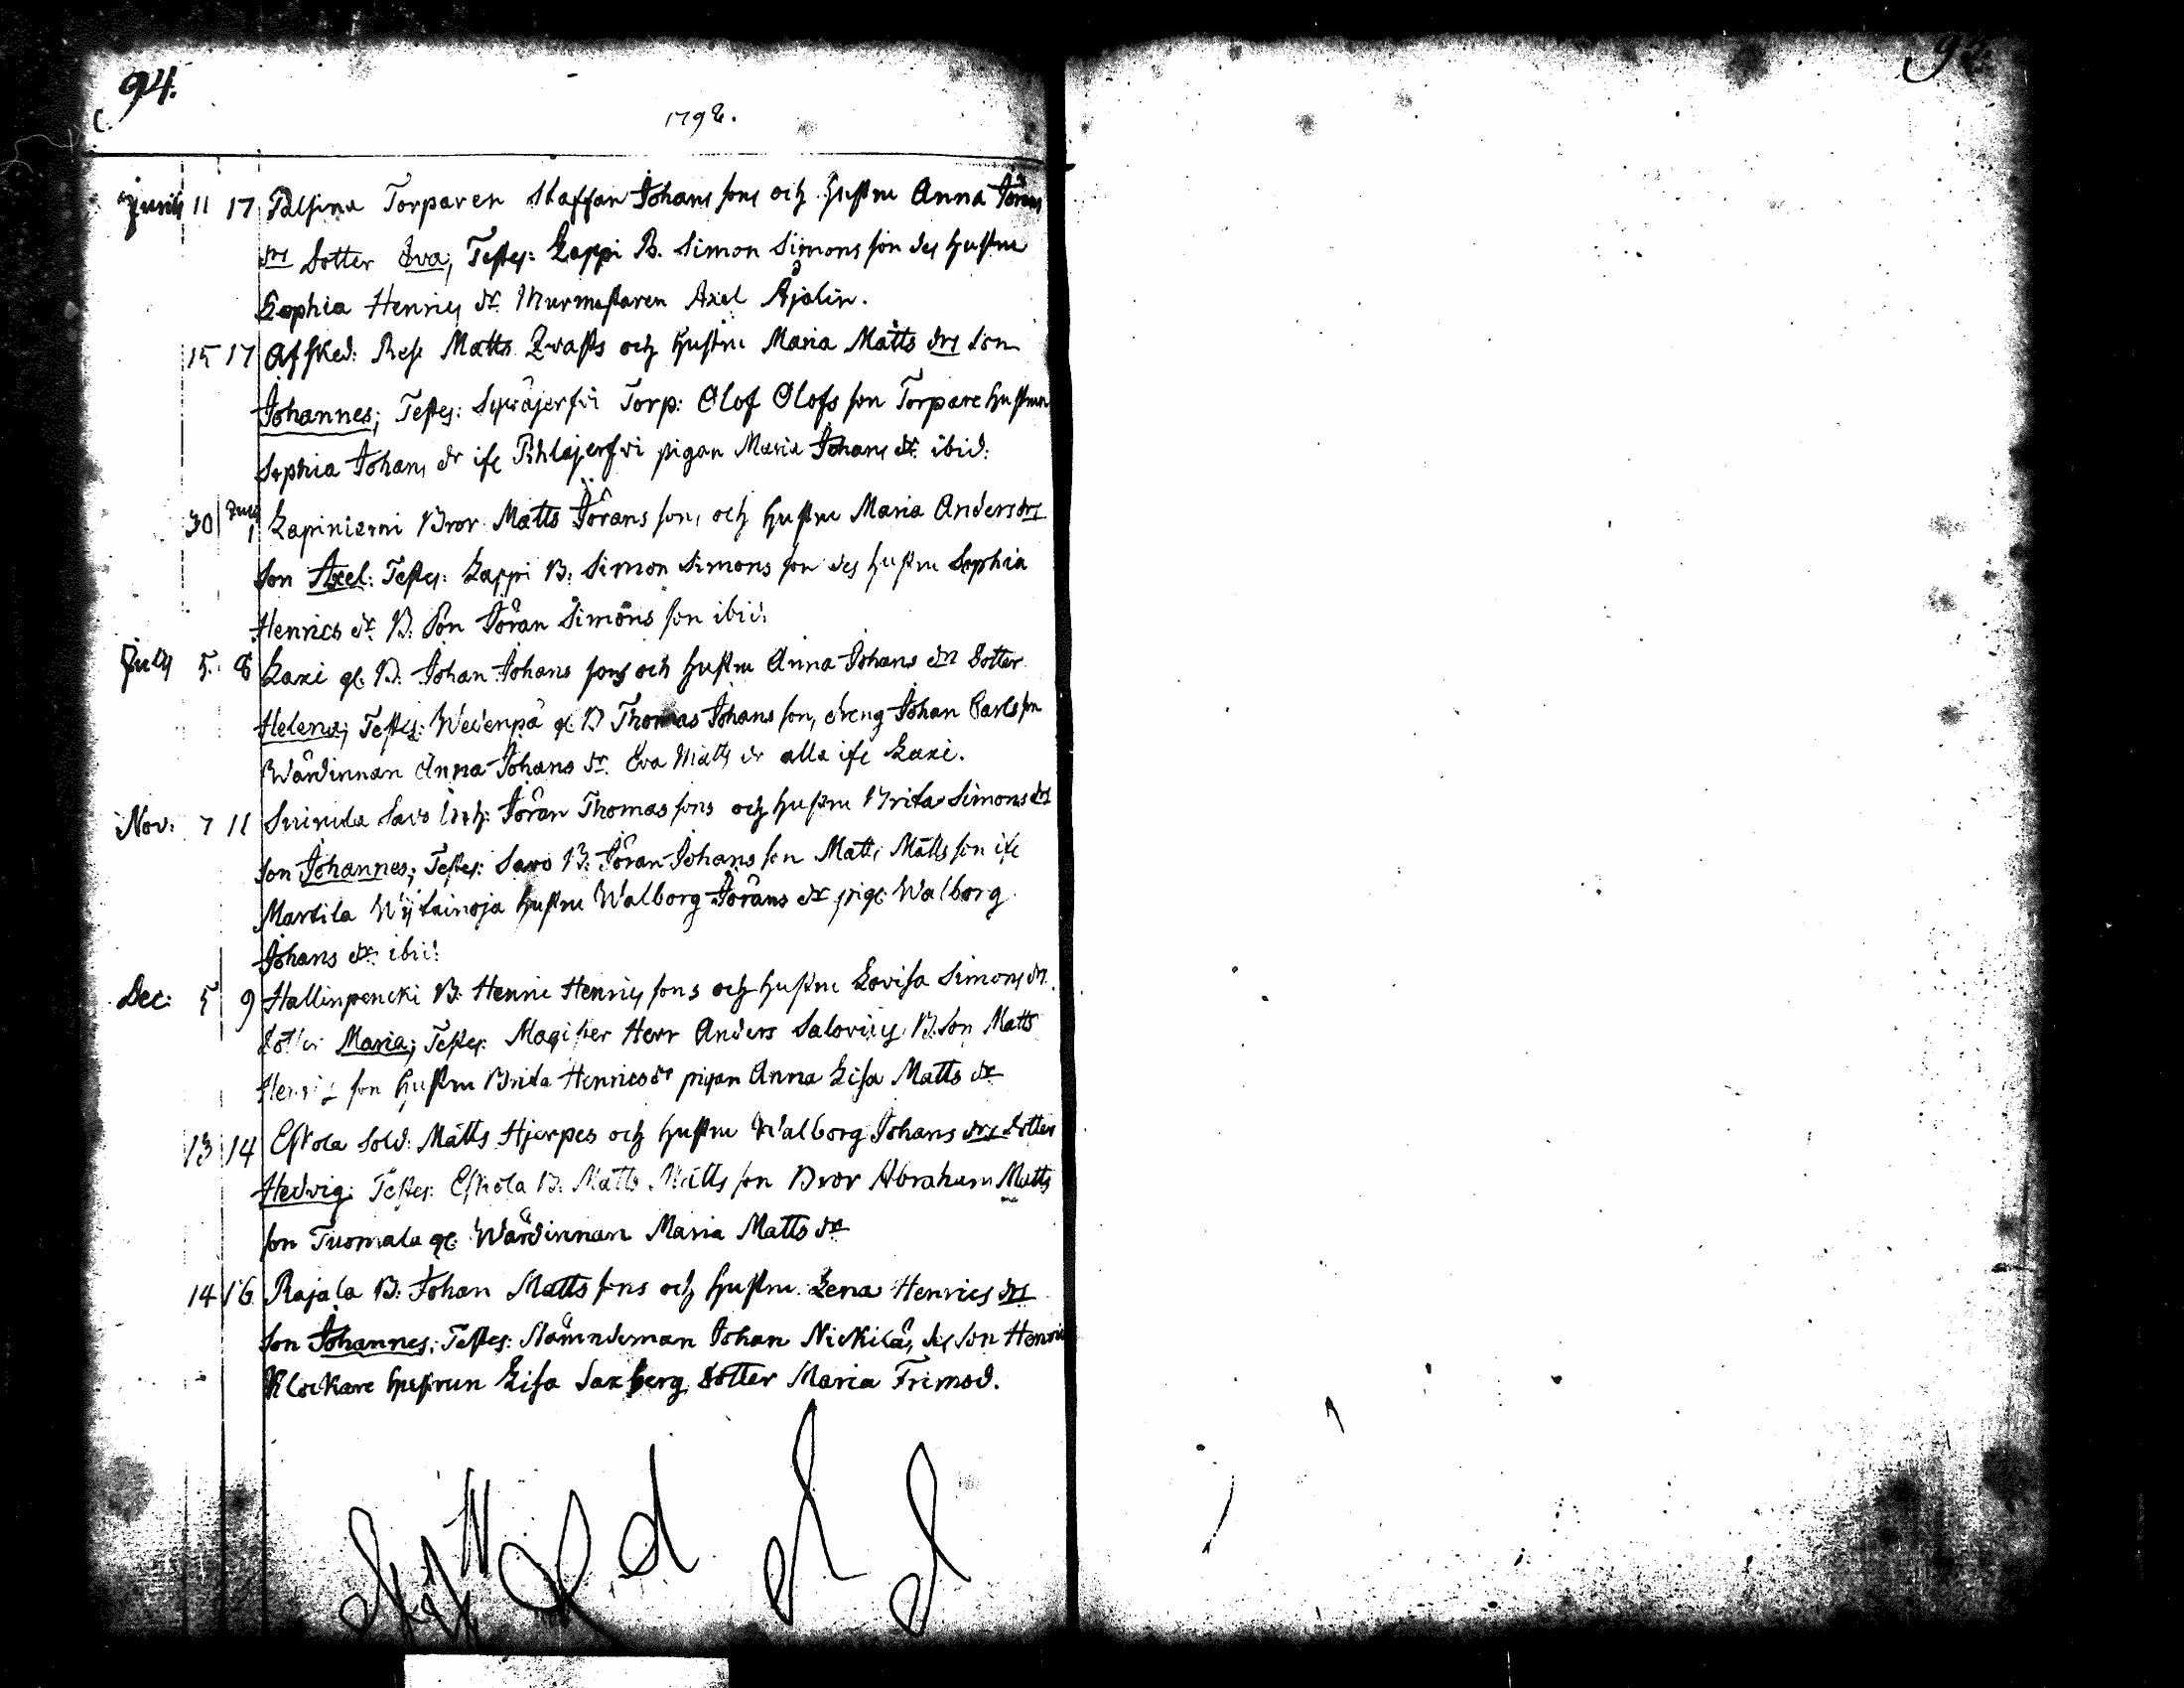 94.
1792.
Junii 11 17 Torparen Staffan Johans sons och hustru Anna Jörans
drs Dotter Eva; Testes: Lappi B. Simon Simons son des hustru
Sophia Henrics dr Murmästaren Axel Åjolin.
15 17 Afsked: Matts och hustru Maria Matts drs Son
Johannes; Testes: Torp: Olof Olofs son Torpare hustrun
Sophia Johans dr ifr pigan Maria Johans dr ibid:
30 1 Lapiniemi Bror Matts Jörans sons och hustru Maria Anders drs
Son Axel: Testes: Lappi B: Simon Simons son des hustru Sophia
Henrics dr B: Son Jöran Simons son ibid:
July 5. 8 Laxi gl. B. Johan Johans sons och hustru Anna Johans drs Dotter
Helena; Testes: Wedenpä gl B Thomas Johans son, dreng Johan Carls son
Wärdinnan Anna Johans dr. Eva Matts dr alla ifr Laxi.
Nov: 7 11 Savo Inh: Jöran Thomas sons och hustru Brita Simons drs
Son Johannes; Testes: Savo B: Jöran Johans son Matts Matts son ifr
Martila hustru Walborg Jörans dr pig: Walborg
Johans dr: ibid:
Dec: 5 9 Hallinpencki B. Henric Henrics sons och hustru Lovisa Simons drs
Dotter Maria; Testes: Magister Herr Anders B. Son Matts
Henrics son hustru Brita Henrics dr pigan Anna Lisa Matts dr
13 14 Eskola Sold: Matts Hjerpes och hustru Walborg Johans drs Dotter
Hedvig: Testes: Eskola B. Matts Matts son Bror Abraham Matts
son Tuomala gl. Wärdinnan Maria Matts dr
14 16 Rajala B: Johan Matts sons och hustru Lena Henrics drs
Son Johannes; Testes: Nämndeman Johan Nickilä, des Son Henric
Klockare hustrun Lisa Saxberg Dotter Maria Frimod.